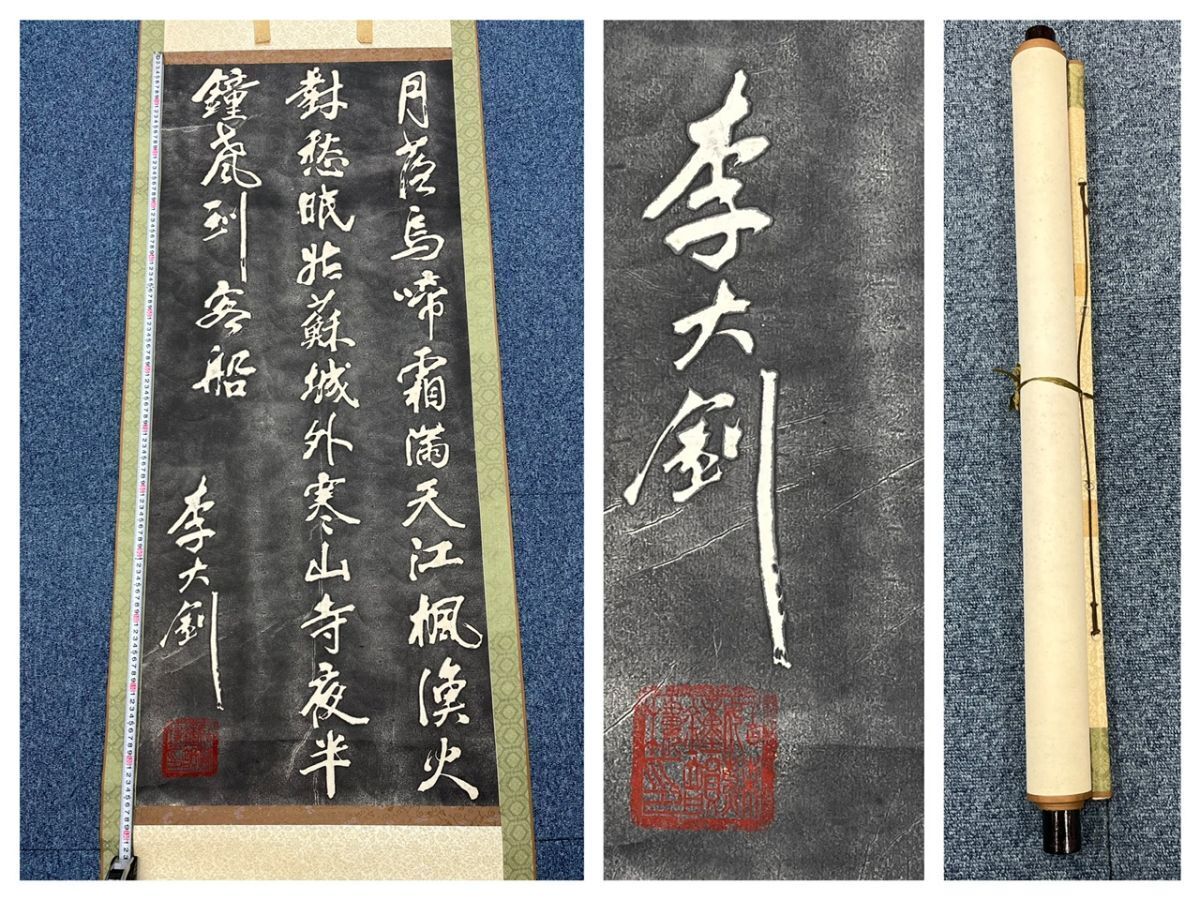 月落烏啼霜滿天江楓漁火
對愁眠姑蘇城外寒山寺夜半
鐘聲到客船
李大釗
李大釗